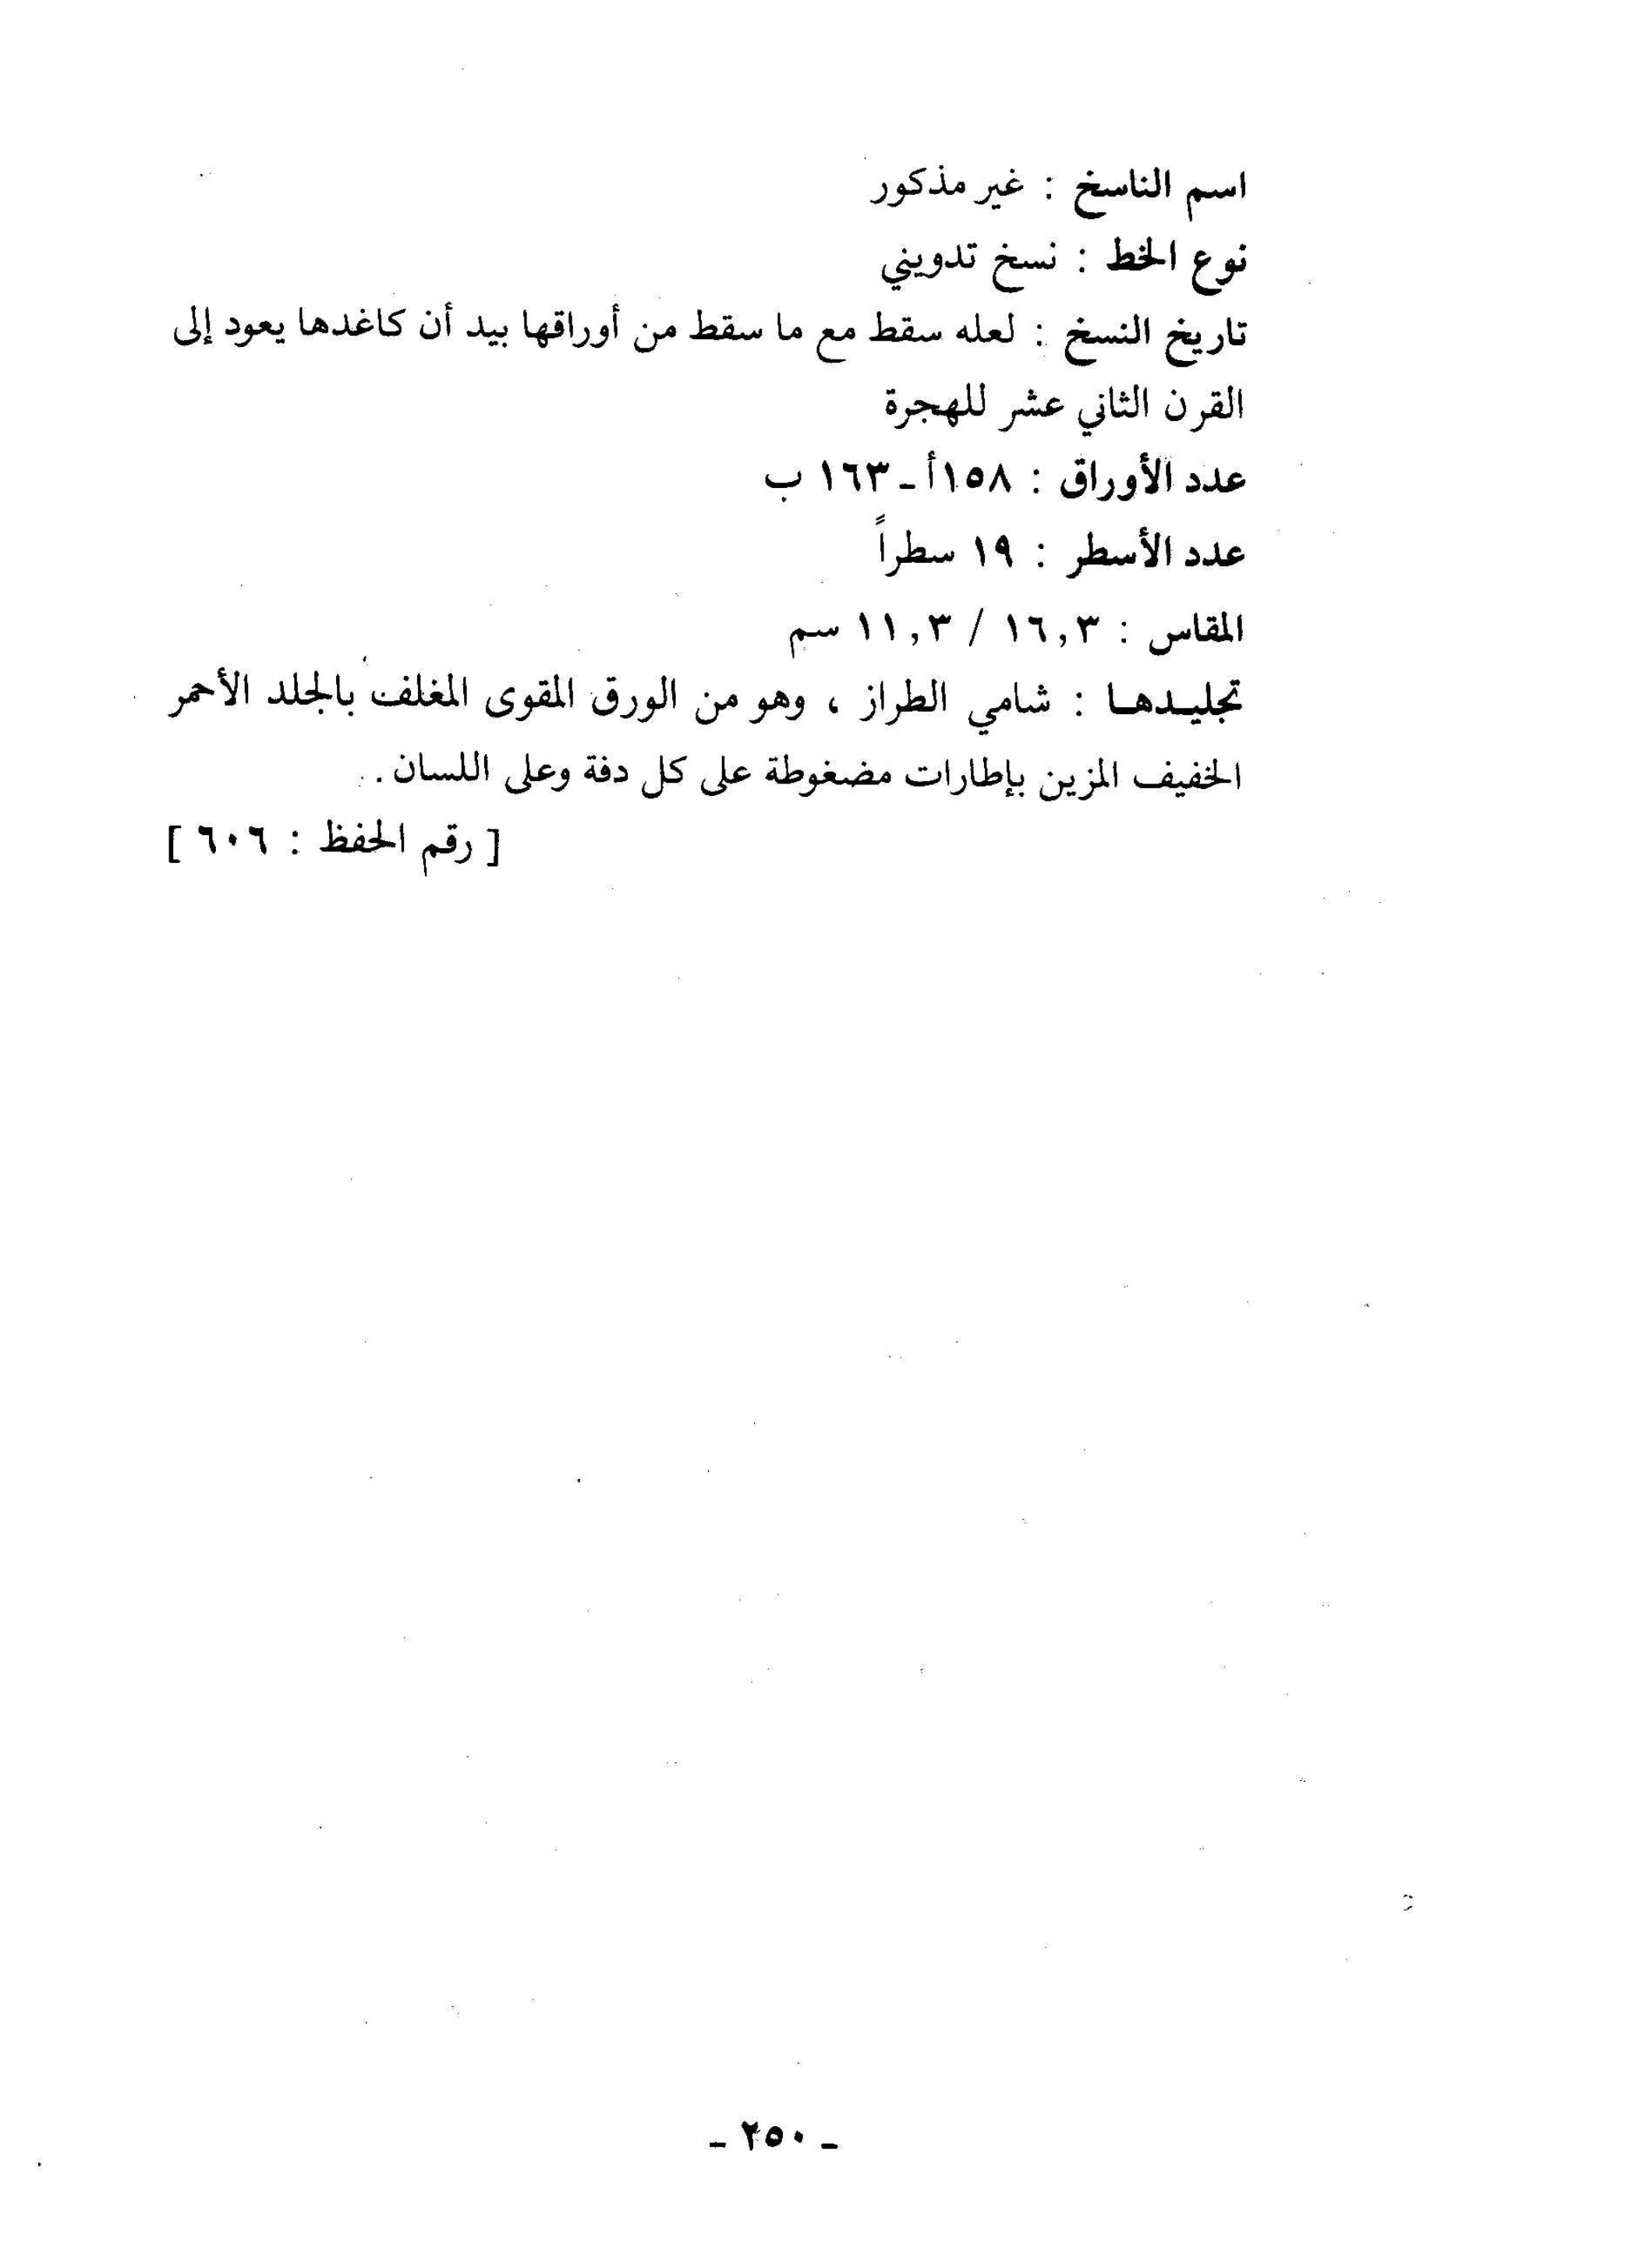 اسم الناسخ : غير مذكور
نوع الخط : نسخ تدويني
تاريخ النسخ : لعله سقط مع ما سقط من أوراقها بيد أن كاغدها يعود إلى
القرن الثاني عشر للهجرة
عدد الأوراق : ١٥٨أ - ١٦٣ ب
عدد الأسطر : ١٩ سطراً
المقاس : ١٦,٣ / ١١,٣ سم
تجليـدهـا : شامي الطراز ، وهو من الورق المقوى المغلف بالجلد الأحمر
الخفيف المزين بإطارات مضغوطة على كل دفة وعلى اللسان .
[ رقم الحفظ : ٦٠٦ ]
- ٢٥٠ -